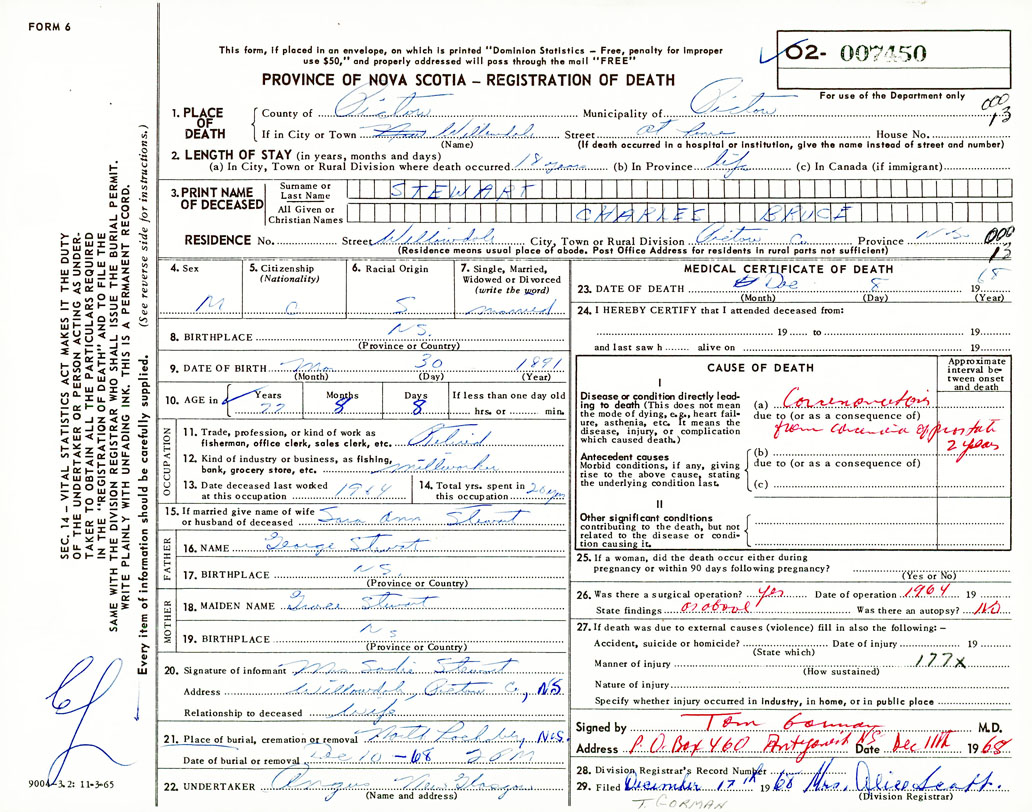 FORM 6
This form, if placed in an envelope, on which is printed "Dominion Statistics – Free, penalty for improper
use $50," and properly addressed will pass through the mail "FREE"
PROVINCE OF NOVA SCOTIA – REGISTRATION OF DEATH
02- 007450
For use of the Department only
000
13
1. PLACE OF DEATH
County of Pictou Municipality of Pictou
If in City or Town Willowdale Street at home House No.
(Name) (If death occurred in a hospital or institution, give the name instead of street and number)
2. LENGTH OF STAY (in years, months and days)
(a) In City, Town or Rural Division where death occurred 18 years (b) In Province life (c) In Canada (if immigrant)
3. PRINT NAME OF DECEASED
Surname or Last Name STEWART
All Given or Christian Names CHARLES BRUCE
RESIDENCE No. Street Willowdale City, Town or Rural Division Pictou Co. Province N.S.
(Residence means usual place of abode. Post Office Address for residents in rural parts not sufficient)
000
13
4. Sex M
5. Citizenship (Nationality) C
6. Racial Origin S
7. Single, Married, Widowed or Divorced (write the word) married
8. BIRTHPLACE N.S.
(Province or Country)
9. DATE OF BIRTH 30 1891
(Month) (Day) (Year)
10. AGE in Years 77 Months 8 Days 8 If less than one day old
hrs. or min.
OCCUPATION
11. Trade, profession, or kind of work as
fisherman, office clerk, sales clerk, etc. Retired
12. Kind of industry or business, as fishing,
bank, grocery store, etc. millworker
13. Date deceased last worked
at this occupation 1964
14. Total yrs. spent in
this occupation 20 yrs
15. If married give name of wife
or husband of deceased Sara Ann Stewart
FATHER
16. NAME George Stewart
17. BIRTHPLACE N.S.
(Province or Country)
MOTHER
18. MAIDEN NAME Grace Stewart
19. BIRTHPLACE N S
(Province or Country)
20. Signature of informant Mrs Sadie Stewart
Address Willowdale, Pictou Co, N.S.
Relationship to deceased wife
21. Place of burial, cremation or removal N.S.
Date of burial or removal Dec 10 - 68 2 PM
22. UNDERTAKER Angus New Glasgow
(Name and address)
MEDICAL CERTIFICATE OF DEATH
23. DATE OF DEATH Dec 8 1968
(Month) (Day) (Year)
24. I HEREBY CERTIFY that I attended deceased from:
19 to 19
and last saw h alive on 19
CAUSE OF DEATH
Approximate interval between onset and death
I
Disease or condition directly leading to death (This does not mean the mode of dying, e.g., heart failure, asthenia, etc. It means the disease, injury, or complication which caused death.)
(a)
due to (or as a consequence of)
from prostate
2 years
Antecedent causes
Morbid conditions, if any, giving rise to the above cause, stating the underlying condition last.
(b)
due to (or as a consequence of)
(c)
II
Other significant conditions contributing to the death, but not related to the disease or condition causing it.
25. If a woman, did the death occur either during
pregnancy or within 90 days following pregnancy?
(Yes or No)
26. Was there a surgical operation? Yes Date of operation 1964 19
State findings as above Was there an autopsy? NO
27. If death was due to external causes (violence) fill in also the following: –
Accident, suicide or homicide? Date of injury 19
(State which)
Manner of injury 177x
(How sustained)
Nature of injury
Specify whether injury occurred in Industry, in home, or in public place
Signed by Tom Gorman M.D.
Address P.O. Box 460 Antigonish N.S. Date Dec 11th 1968
28. Division Registrar's Record Number
29. Filed December 17th 1968 Mrs. Alice Scott.
(Division Registrar)
T. GORMAN
SEC. 14 – VITAL STATISTICS ACT MAKES IT THE DUTY
OF THE UNDERTAKER OR PERSON ACTING AS UNDER-
TAKER TO OBTAIN ALL THE PARTICULARS REQUIRED
IN THE "REGISTRATION OF DEATH" AND TO FILE THE
SAME WITH THE DIVISION REGISTRAR WHO SHALL ISSUE THE BURIAL PERMIT.
WRITE PLAINLY WITH UNFADING INK. THIS IS A PERMANENT RECORD.
Every item of information should be carefully supplied. (See reverse side for instructions.)
9004-3.2: 11-3-65